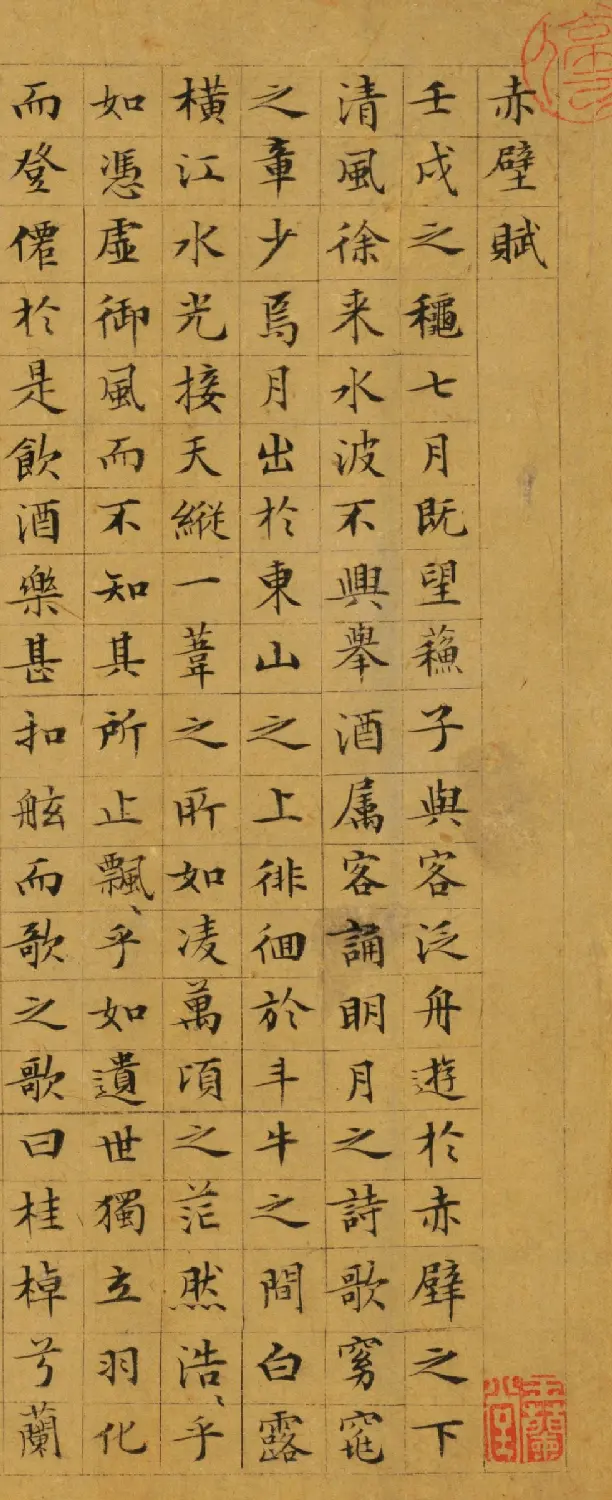 赤壁賦
壬戌之龝七月既望蘓子與客泛舟遊於赤壁之下
清風徐来水波不興舉酒属客誦明月之詩歌窈窕
之章少焉月出於東山之上徘徊於斗牛之間白露
橫江水光接天縱一葦之所如凌萬頃之茫然浩〻乎
如憑虛御風而不知其所止飄〻乎如遺世獨立羽化
而登僊於是飲酒樂甚扣舷而歌之歌曰桂棹兮蘭